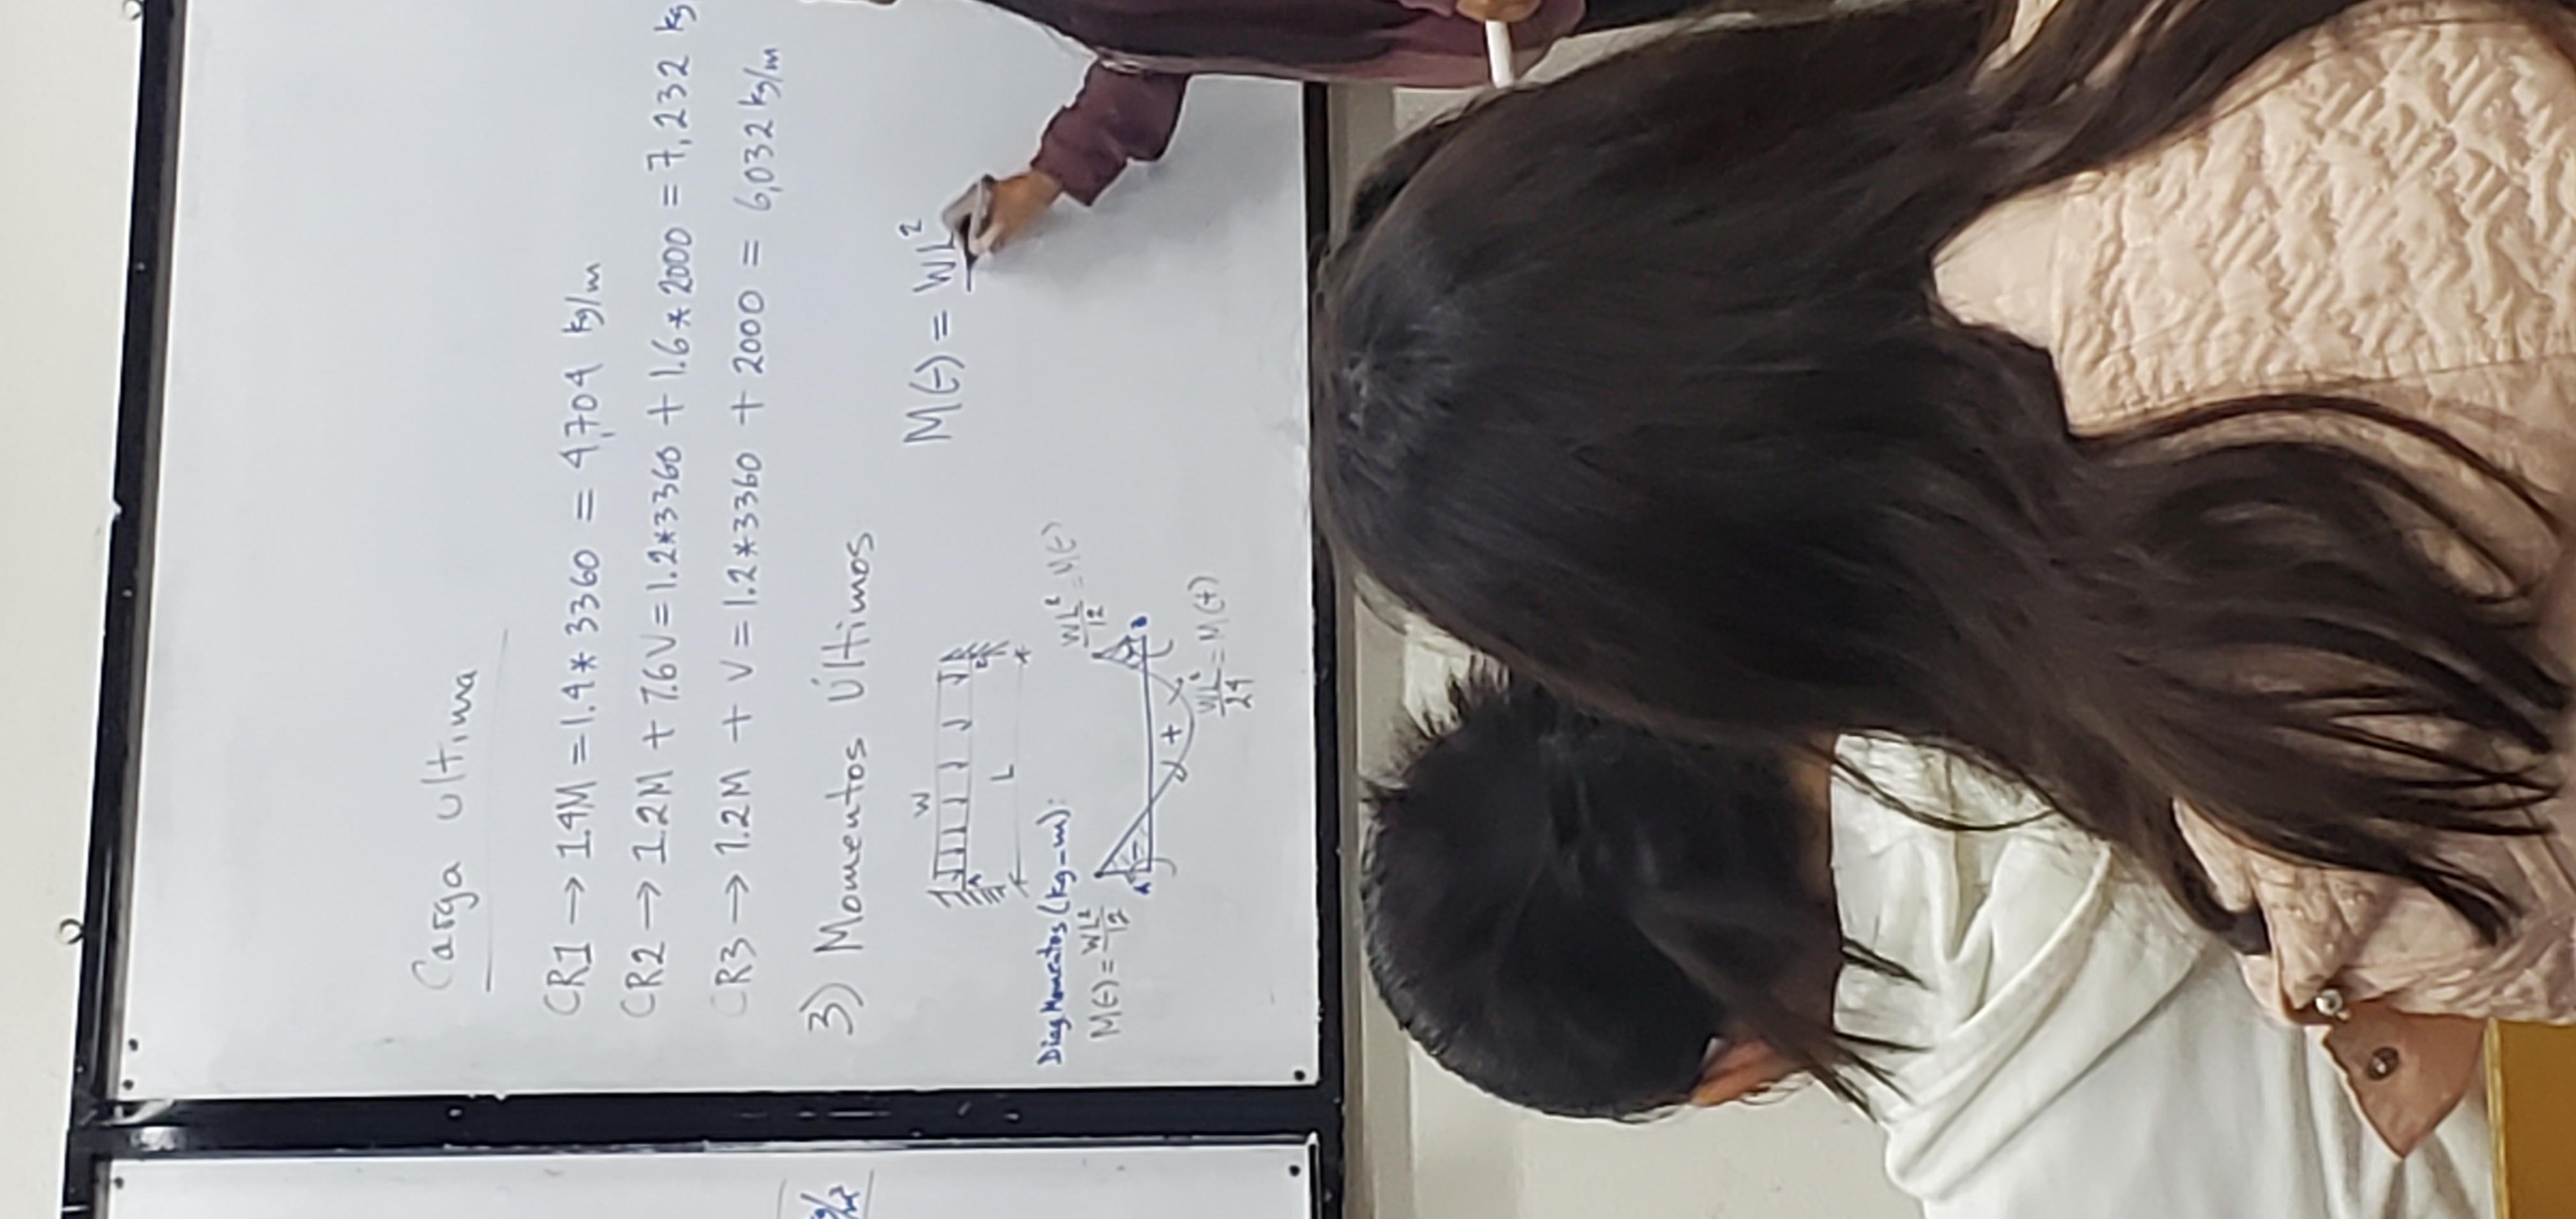 Carga ultima
CR1 → 1.4M = 1.4 * 3360 = 4,704 kg/m
CR2 → 1.2M + 1.6V = 1.2*3360 + 1.6 * 2000 = 7,232 kg
CR3 → 1.2M + V = 1.2*3360 + 2000 = 6,032 kg/m
3) Momentos Últimos
W
A
L
M(-) = WL²
Diag Momentos (kg-m):
M(-) = WL²/12
WL²/12 = M(-)
A - + - B
WL²/24 = M(+)